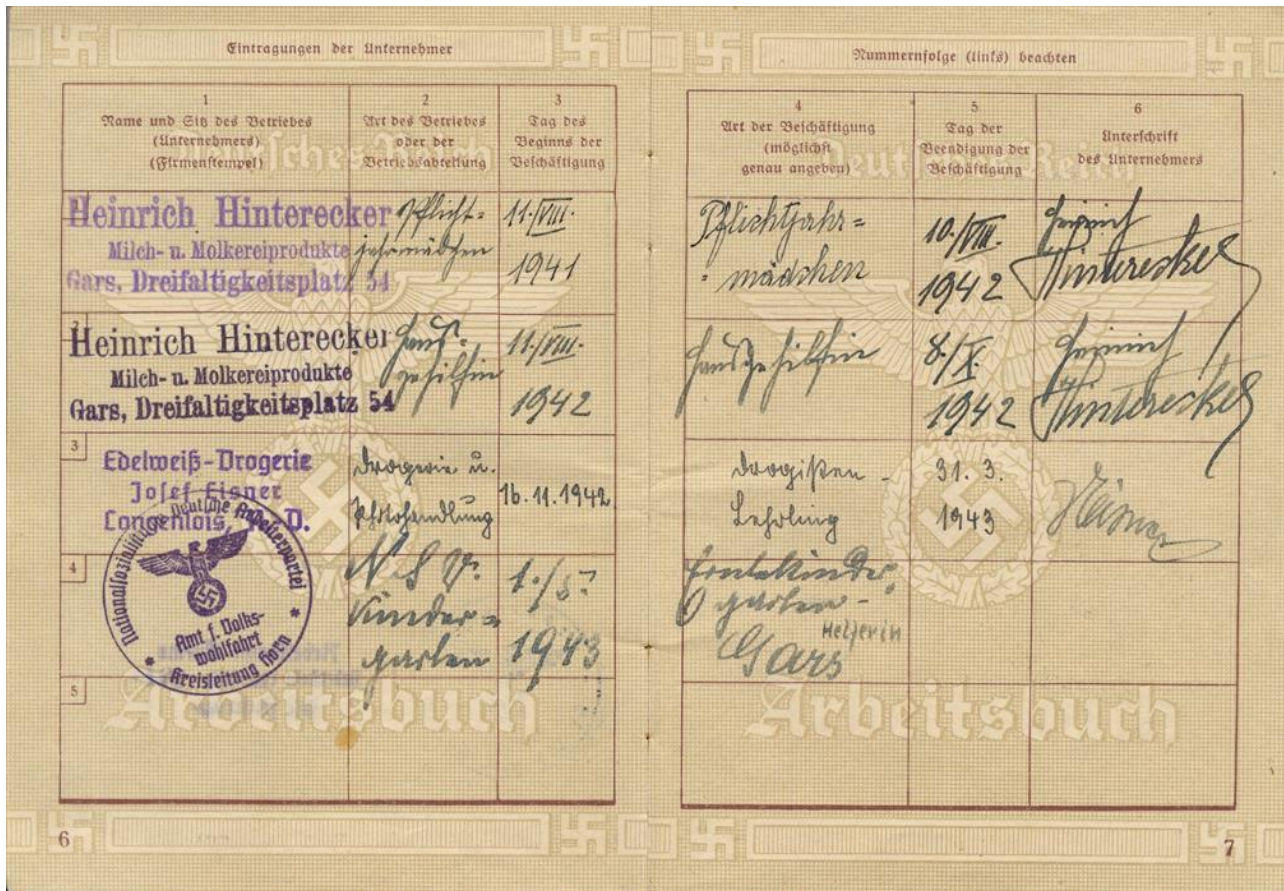 Eintragungen der Unternehmer
1
Name und Sitz des Betriebes
(Unternehmers)
(Firmenstempel)
2
Art des Betriebes
oder der
Betriebsabteilung
3
Tag des
Beginns der
Beschäftigung
Heinrich Hinterecker
Milch- u. Molkereiprodukte
Gars, Dreifaltigkeitsplatz 54
Pflicht=
jahrmädchen
11./VIII.
1941
2
Heinrich Hinterecker
Milch- u. Molkereiprodukte
Gars, Dreifaltigkeitsplatz 54
Haus=
gehilfin
11./VIII.
1942
3
Edelweiß-Drogerie
Josef Eisner
Langenlois, N. D.
Drogerie u.
Photohandlung
16.11.1942
4
Nationalsozialistische Deutsche Arbeiterpartei
Amt f. Volks-
wohlfahrt
Kreisleitung Horn
N.S.V.
Kinder=
garten
1./5.
1943
5
Deutsches Reich
Arbeitsbuch
6
Nummernfolge (links) beachten
4
Art der Beschäftigung
(möglichst
genau angeben)
5
Tag der
Beendigung der
Beschäftigung
6
Unterschrift
des Unternehmers
Pflichtjahr=
=mädchen
10./VIII.
1942
Heinrich
Hinterecker
Hausgehilfin
8./X.
1942
Heinrich
Hinterecker
Drogisten-
Lehrling
31. 3.
1943
Erntekinder
garten-
Helferin
Gars
Deutsches Reich
Arbeitsbuch
7